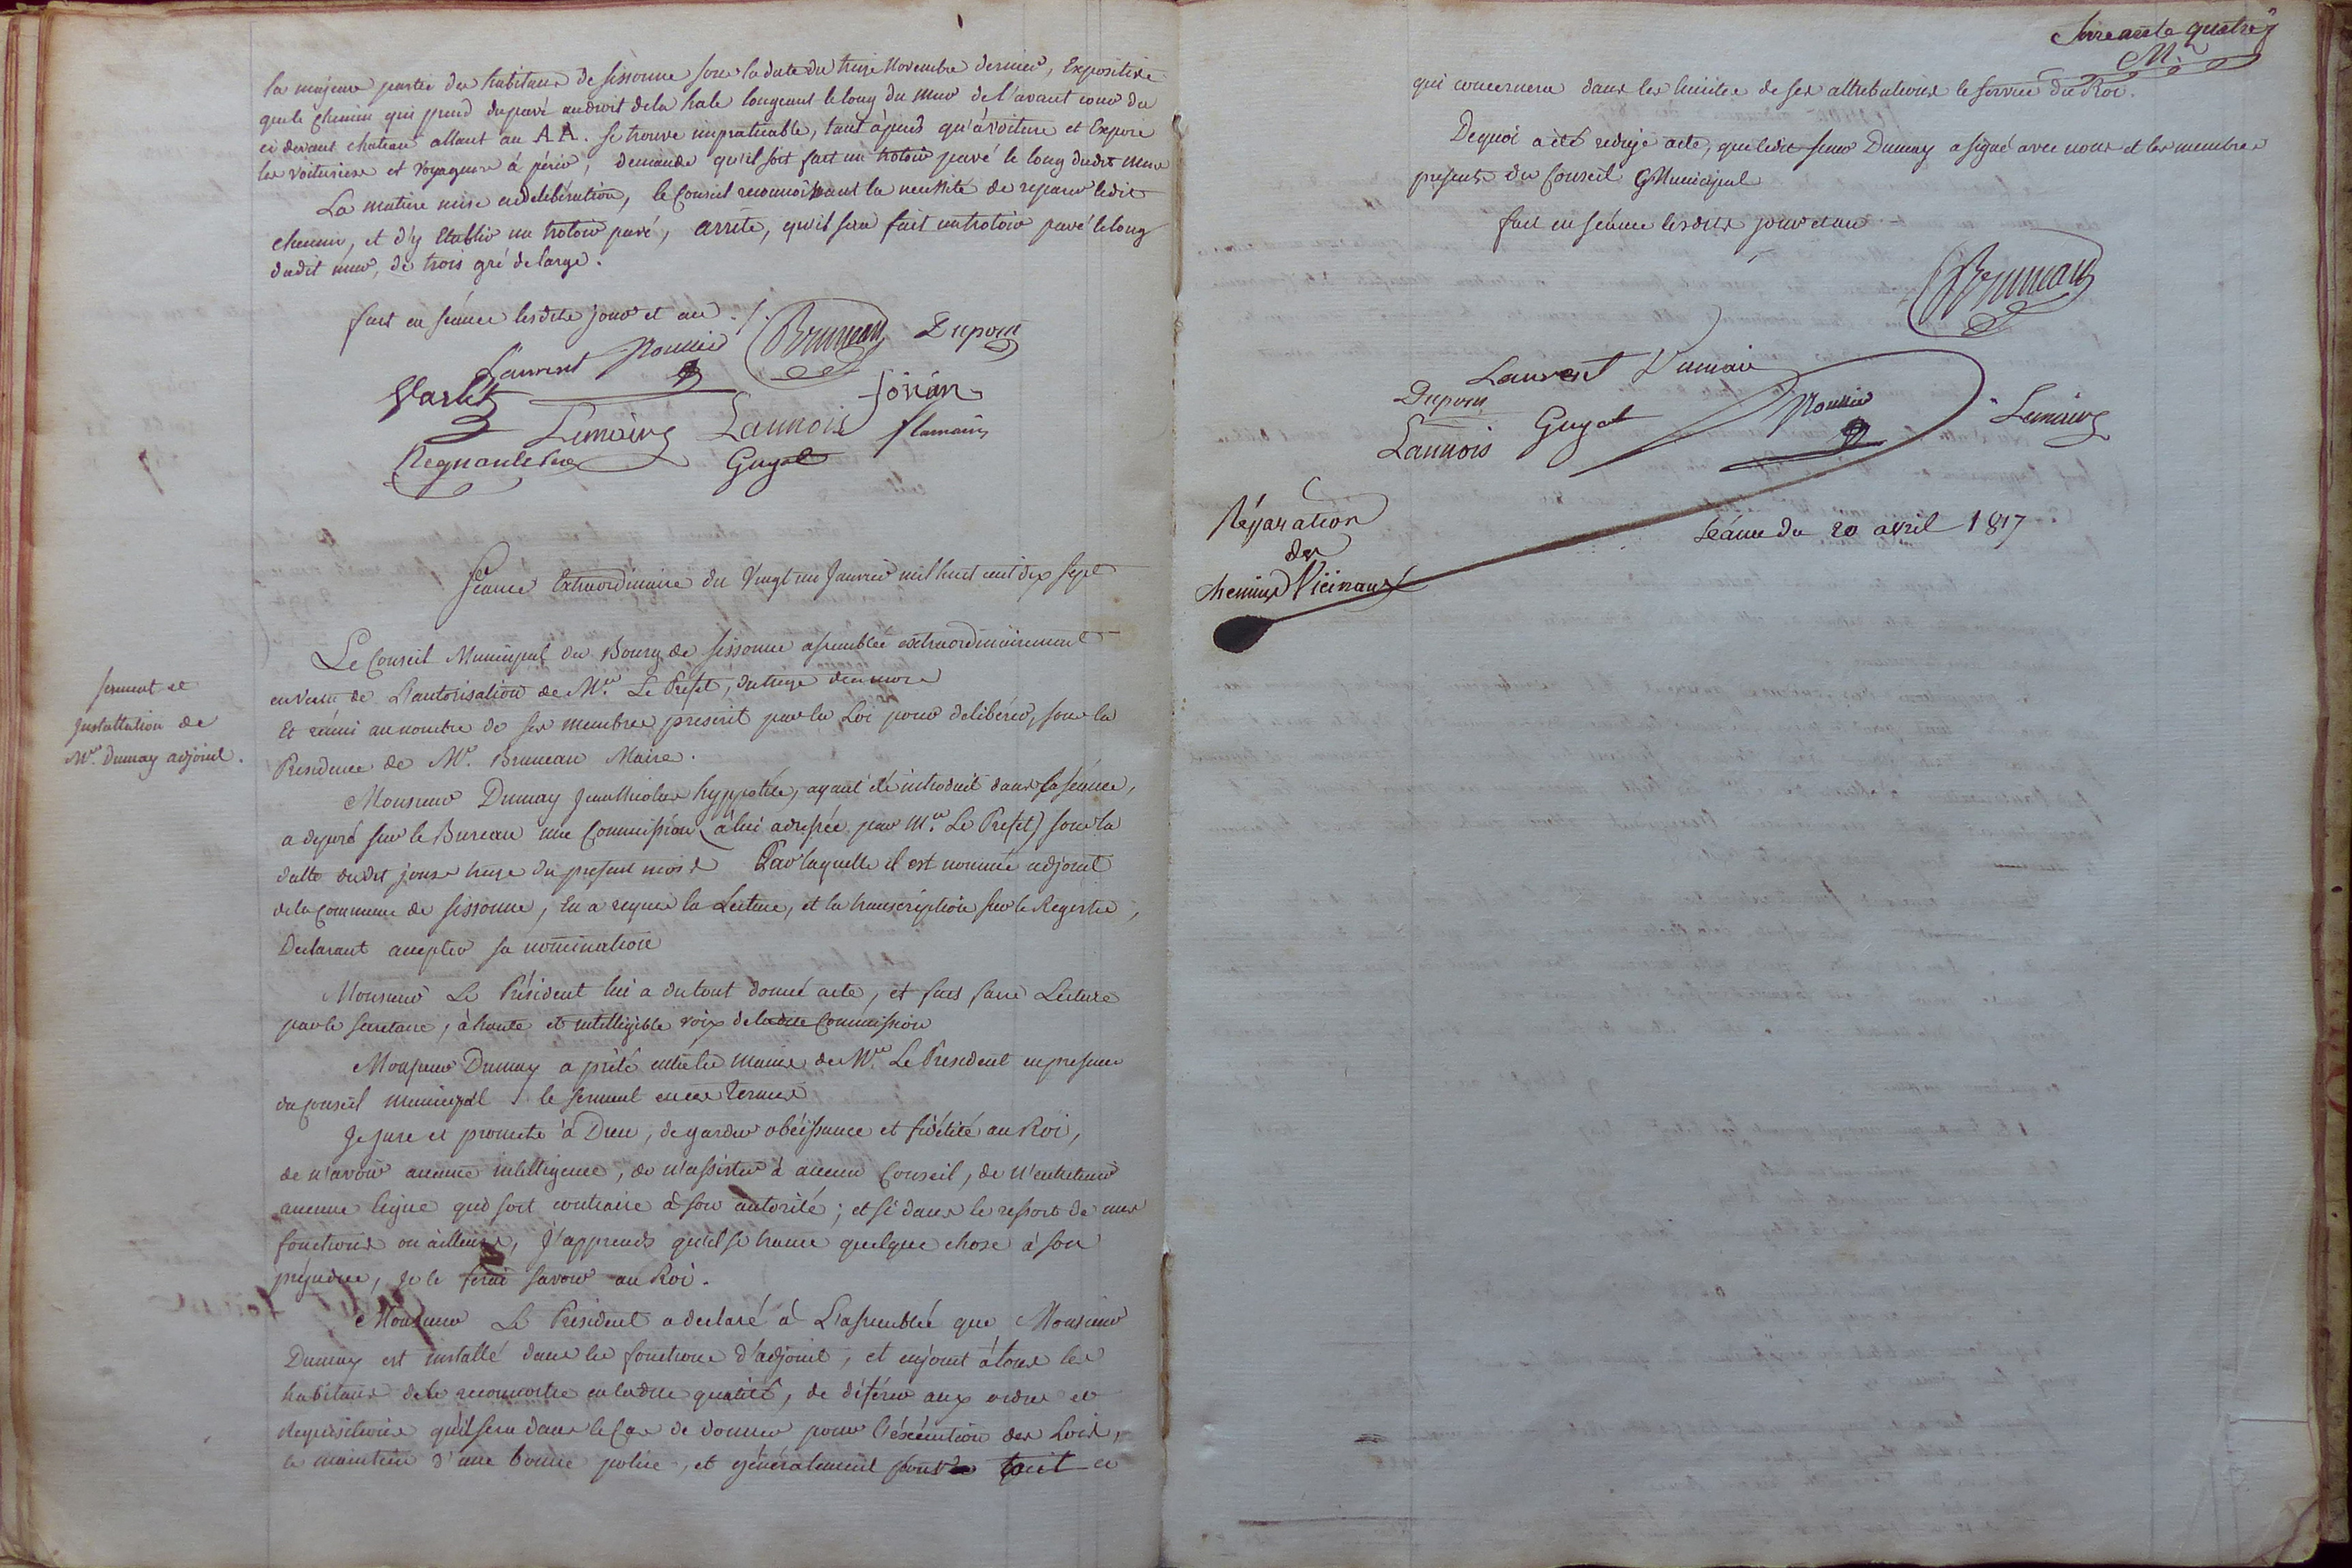 la majeure partie des habitans de sissonne sous la date du treize Novembre dernier, Expositive
que le chemin qui prend du pavé au droit de la hale longeant le long du mur de l'avant cour du
ci devant chateau allant au AA. se trouve impraticable, tant à pied qu'à voiture et Expose
les voituriers et voyageurs à périr, demande qu'il soit fait un trotoir pavé le long dudit mur
La matiere mise en deliberation, le Conseil reconnoissant la necessité de reparer ledit
chemin, et d'y Etablir un trotoir pavé, arrete, qu'il sera fait un trotoir pavé le long
dudit mur, de trois gré de large.
fait en séance lesdits jour et an ./.
Bruneau Dupont
Laurent Noullié
Varlet
Lemaire Launois
flamain
Regnault
Guyot
Séance Extraordinaire du Vingt un Janvier mil huit cent dix sept
serment et
Installation de
Mr. Dumay adjoint.
Le Conseil Municipal du Bourg de Sissonne assemblée extraordinairement
en vertu de L'autorisation de Mr. Le Prefet, du treize de ce mois
Et réuni au nombre de ses membres prescrit par la Loi pour delibérer, sous la
Presidence de Mr. Bruneau Maire.
Monsieur Dumay Jean Nicolas hyppolite, ayant été introduit dans la séance,
a deposé sur le Bureau une Commission (à lui adressée par Mr. Le Prefet) sous la
datte dudit jour treize du present mois Par laquelle il est nommé adjoint
de la Commune de sissonne, En a requis la Lecture, et la transcription sur le Registre,
Declarant accepter sa nomination
Monsieur Le Président lui a du tout donné acte, et fait faire Lecture
par le secretaire, à haute et intelligible voix de ladite Commission
Monsieur Dumay a prêté entre les mains de Mr. Le President en presence
du Conseil municipal le serment en ces termes
Je jure et promets à Dieu, de garder obéissance et fidélité au Roi,
de n'avoir aucune intelligence, de n'assister à aucun Conseil, de n'entretenir
aucune ligue qui soit contraire à son autorité ; et si dans le ressort de mes
fonctions ou ailleurs, J'apprends qu'il se trame quelque chose à son
préjudice, je le ferai savoir au Roi.
Monsieur Le President a declaré à L'assemblée que Monsieur
Dumay est installé dans les fonctions d'adjoint, et enjoint à tous les
habitans de le reconnoitre en ladite qualité, de déférer aux ordres et
Requisitions qu'il sera dans le Cas de donner pour l'éxécution des Lois,
le maintien d'une bonne police, et généralement pour tout ce
Soixante quatre
qui concernera dans les limites de ses attributions le service du Roi.
Dequoi a été redigé acte, que ledit sieur Dumay a signé avec nous et les membres
presents du Conseil Municipal
fait en séance lesdits jour et an
Bruneau
Laurent Dumay
Dupont
Launois Guyot Noullié Lemaire
Séance du 20 avril 1817
Réparation
des
chemins Vicinaux